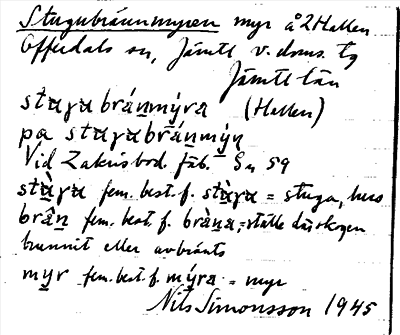 Stugubrännmyren myr å 2 Hallen
Offerdals sn, Jämtl v. doms. tg
Jämtl län
stugubránmýra (Hallen)
pa stugubránmýn
Vid Zakrisbod. fäb. Sn 59
stùgu fem. best. f. stùgu = stuga, hus
brân fem. best. f. bràna, = ställe där skogen
brunnit eller avbränts
myr fem. best. f. mýra = myr
Nils Simonsson 1945